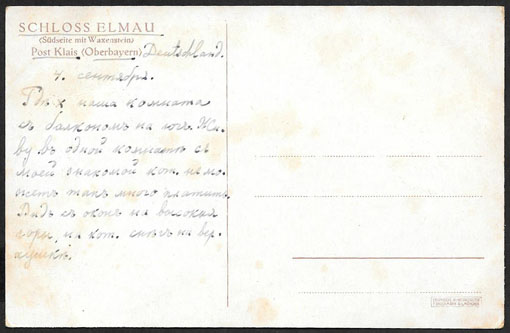 SCHLOSS ELMAU
(Südseite mit Waxenstein)
Post Klais (Oberbayern) Deutschland.
4. сентября.
Гдѣ х наша комната
съ балкономъ на югъ. Жи-
ву въ одной комнатѣ съ
моей знакомой кот. не мо-
жетъ такъ много платить.
Видъ съ окон на высокія
горы, на кот. снѣгъ на вер-
хушкѣ.